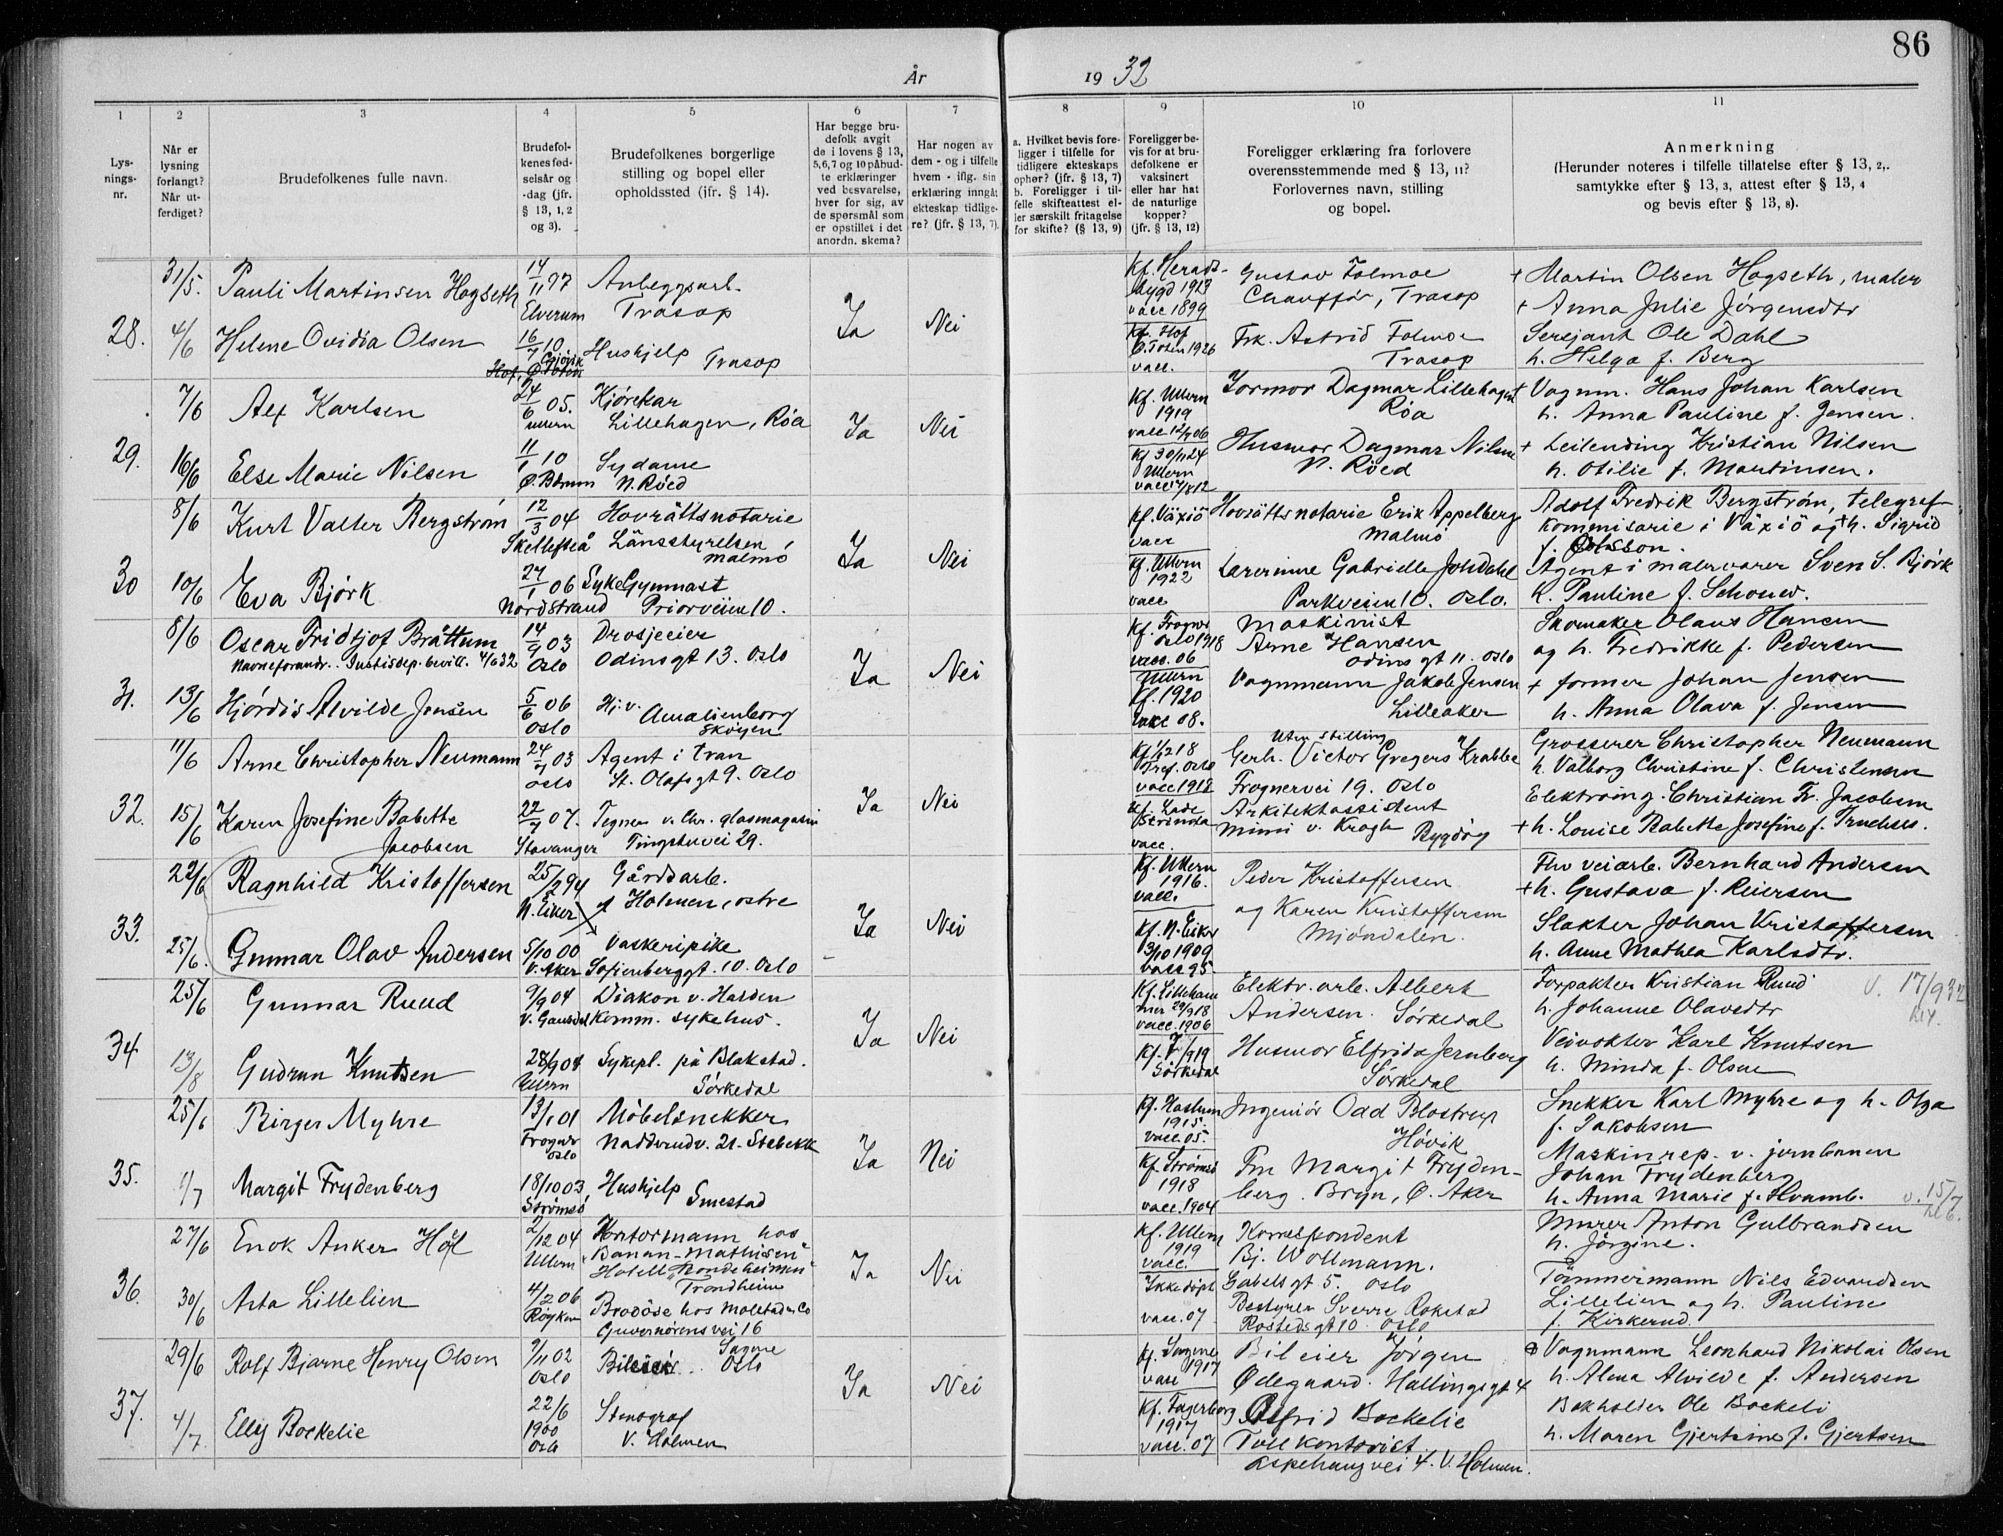 86
År
19 32
1
2
3
4
5
6
7
8
9
10
11
Lys-
nings-
nr.
Når er
lysning
forlangt?
Når ut-
ferdiget?
Brudefolkenes fulle navn.
Brudefol-
kenes fød-
selsår og
-dag (jfr.
§ 13, 1, 2
og 3).
Brudefolkenes borgerlige
stilling og bopel eller
opholdssted (jfr. § 14).
Har begge bru-
defolk avgit
de i lovens § 13,
5,6,7 og 10 påbud-
te erklæringer
ved besvarelse,
hver for sig, av
de spørsmål som
er opstillet i det
anordn. skema?
Har nogen av
dem - og i tilfelle
hvem - iflg. sin
erklæring inngåt
ekteskap tidlige-
re? (jfr. § 13, 7).
a. Hvilket bevis fore-
ligger i tilfelle for
tidligere ekteskaps
ophør? (jfr. § 13, 7)
b. Foreligger i til-
felle skifteattest el-
ler særskilt fritagelse
for skifte? (§ 13, 9)
Foreligger be-
vis for at bru-
defolkene er
vaksinert
eller har hat
de naturlige
kopper?
(jfr. § 13, 12)
Foreligger erklæring fra forlovere
overensstemmende med § 13, 11?
Forlovernes navn, stilling
og bopel.
Anmerkning
(Herunder noteres i tilfelle tillatelse efter § 13, 2,.
samtykke efter § 13, 3, attest efter § 13, 4
og bevis efter § 13, 8).
28.
31/5.
Pauli Martinsen Hogseth
14/11 97
Elverum
Anleggsarb.
Trasop
Ja
Nei
Kf. Herads-
bygd 1913
vacc 1899
Gustav Folmoe
Chauffør, Trasop
+ Martin Olsen Hogseth, maler
+ Anna Julie Jørgensdtr
4/6
Helene Ovidia Olsen
16/7 10
Gjøvik
Hof, Ø. Toten
Hushjelp
Trasop
Kf. Hof
Ø. Toten 1926
vacc.
Frk. Astrid Folmoe
Trasop
Sersjant Ole Dahl
h. Helga f. Berg
29.
7/6
Alf Karlsen
24/6 05.
Ullern
Kjørekar
Lillehagen, Røa
Ja
Nei
Kf. Ullern
1919
vacc 12/9 06
Jormor Dagmar Lillehagen
Røa
+ Vognm. Hans Johan Karlsen
h. Anna Pauline f. Jensen.
16/6
Else Marie Nilsen
11/1 10
Ø. Bærum
Sydame
N. Røed
Kf 30/11 24
Ullern
Husmor Dagmar Nilsen
N. Røed
+ Leilending Kristian Nilsen
h. Otilie f. Martinsen.
30
8/6
Kurt Valter Bergstrøm
12/3 04
Skellefteå
Hovrättsnotarie
Länsstyrelsen
Malmö
Ja
Nei
Kf. Växiö
vacc
Hovrättsnotarie Erik Appelberg
Malmö
Adolf Fredrik Bergstrøm, telegraf-
kommisarie i Växiö og h. Sigrid
f. Olsson.
10/6
Eva Bjørk
27/1 06
Nordstrand
SykeGymnast
Priorveien 10.
Kf. Ullern
1922
vacc
Lærerinne Gabrielle Johdahl
Parkveien 10. Oslo.
Agent i malervarer Sven S. Bjørk
h. Pauline f. Schouw.
31.
8/6
Oscar Fridtjof Bråttum
Navneforandr. Justisdep. bevill. 4/6 32
14/9 03
Oslo
Drosjeeier
Odinsgt 13. Oslo
Ja
Nei
Kf. Frogner
Oslo 1918
vacc. 06
Maskinist
Arne Hansen
Odinsgt 11. Oslo
Skomaker Olaus Hansen
og h. Fredrikke f. Pedersen
13/6
Hjørdis Alvilde Jensen
5/6 06
Oslo
Hj.v.
Amalienborg
Skøyen
Ullern
Kf. 1920
vacc 08.
Vognmann Jakob Jensen
Lilleaker
+ former Johan Jensen
h. Anna Olava f. Jensen
32.
11/6
Arne Christopher Neumann
24/9 03
Oslo
Agent i tran
St. Olafsgt 9. Oslo
Ja
Nei
Kf. 1/2 18
Tref. Oslo
vacc 1912
Uten stilling
Gerh. Victor Gregers Krabbe
Frognervei 19. Oslo
Grosserer Christopher Neumann
h. Valborg Christine f. Christensen
15/6
Karen Josefine Babette
Jacobsen
22/7 07.
Stavanger
Tegner v. Chr. glasmagasin
Tingstuvei 29.
Kf. Lade
Strinda
vacc.
Arkitektassistent
Mimi v. Krogh Bygdøy
Elektroing. Christian Fr. Jacobsen
+ h. Louise Babette Josefine f. Truchses.
33.
22/6
Ragnhild Kristoffersen
25/2 94
N. Eiker
Gårdsarb.
Holmen, østre
Ja
Nei
Kf. Ullern
1916.
vacc.
Peder Kristoffersen
og Karen Kristoffersen
Mjøndalen.
Fhv veiarb. Bernhard Andersen
+ h. Gustava f. Reiersen
25/6.
Gunnar Olav Andersen
5/10 00
V. Aker
Vaskeripike
Sofienberggt. 10. Oslo
Kf. N. Eiker
3/10 1909
vacc 95
Slakter Johan Kristoffersen
h. Anne Mathea Karlsdtr.
34
25/6
Gunnar Ruud
9/9 04
V. Gausdal
Diakon v. Halden
Komm. sykehus.
Ja
Nei
Kf. Lilleham
mer 29/9 18
vacc. 1906
Elektr. arb. Albert
Andersen. Sørkedal
Forpakter Kristian Ruud
h. Johanne Olavsdtr
V. 17/9 32
13/8
Gudrun Knutsen
28/9 04
Ullern
Sykepl. på Blakstad.
Sørkedal
Sørkedal
Husmor Elfrida Jernberg
Sørkedal
Veivokter Karl Knutsen
h. Minda f. Olsen
35.
25/6
Birger Myhre
13/1 01
Frogner
Oslo
Møbelsnekker
Nadderudv. 21. Stabekk
Ja
Nei
Kf. Haslum
1915.
vacc. 05.
Ingeniør Odd Blostrup
Høvik
Snekker Karl Myhre og h. Olga
f. Jakobsen
1/7
Margit Frydenberg
18/10 03
Strømsø
Hushjelp
Smestad
Kf. Strømsø
1918
vacc. 1904
Fru Margit Fryden-
berg. Bryn, Ø. Aker
Maskinrep. v. jernbanen
Johan Frydenberg
h. Anna Marie f. Hvamb.
v. 15/7
36.
27/6
Enok Anker Høl
2/12 04
Ullern
Kontormann hos
"Banan-Mathisen"
Hotell "Trondeheimen"
Trondheim
Ja
Nei
Kf. Ullern
1919
vacc.
Korrespondent
Bj. Wollmann.
Gabelsgt 5. Oslo
Murer Anton Gulbrandsen
h. Jørgine.
30/6
Asta Lillelien
4/2 06
Røyken
Brodøse hos Molstad & Co
Guvernørensvei 16
Ikke døpt
vacc. 07
Bestyrer Sverre Rokstad
Rostedsgt 10. Oslo
Tømmermann Nils Edvardsen
Lillelien og h. Pauline
f. Kirkerud.
37.
29/6
Rolf Bjarne Henry Olsen
9/11 02
Oslo
Bileier
Sagene
Oslo
Ja
Nei
Kf. Sagene
1917
vacc
Bileier Jørgen
Ødegaard. Hallingsgt 4
Vognmann Leonhard Nikolai Olsen
h. Alma Alvilde f. Andersen
4/7
Elly Bockelie
22/6
1900
Oslo
Stenograf
V. Holmen
Kf. Fagerborg
1917
vacc. 07
Alfrid Bockelie
Tollkontorist
Espehaugvei 4. V. Holmen.
Bokholder Ole Bockeli
h. Maren Gjertine f. Gjertsen